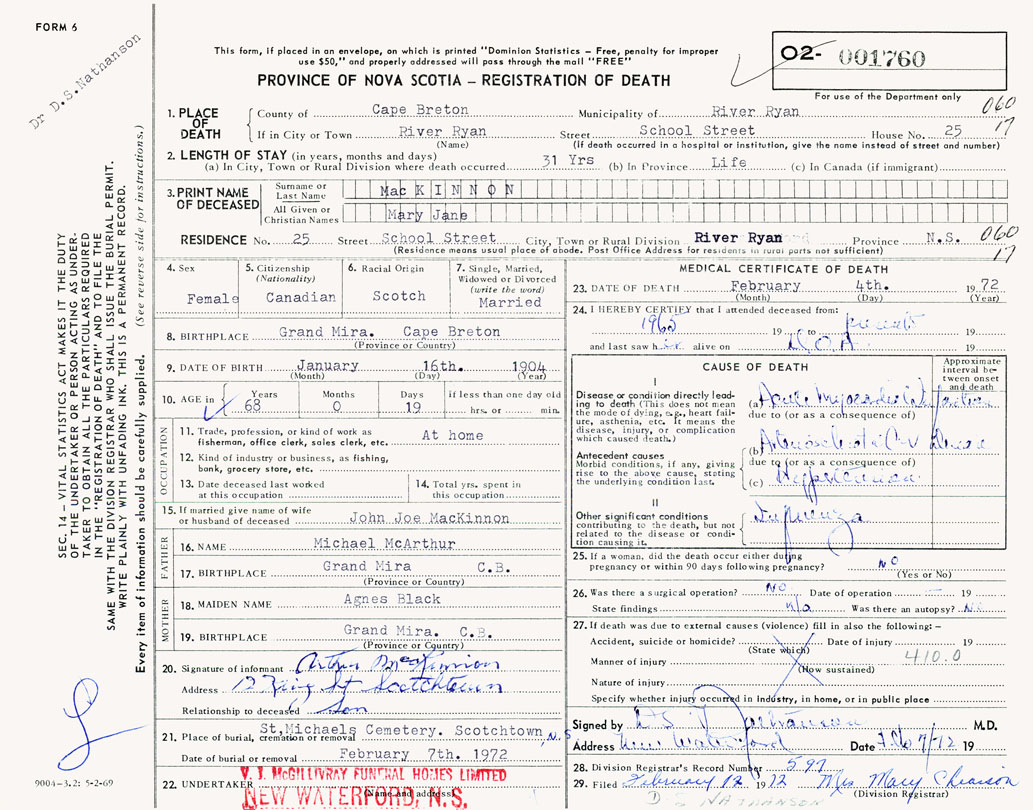 FORM 6
Dr D.S.Nathanson
This form, if placed in an envelope, on which is printed "Dominion Statistics – Free, penalty for improper
use $50," and properly addressed will pass through the mail "FREE"
PROVINCE OF NOVA SCOTIA – REGISTRATION OF DEATH
02- 001760
For use of the Department only
060
17
SEC. 14 – VITAL STATISTICS ACT MAKES IT THE DUTY
OF THE UNDERTAKER OR PERSON ACTING AS UNDER-
TAKER TO OBTAIN ALL THE PARTICULARS REQUIRED
IN THE "REGISTRATION OF DEATH" AND TO FILE THE
SAME WITH THE DIVISION REGISTRAR WHO SHALL ISSUE THE BURIAL PERMIT.
WRITE PLAINLY WITH UNFADING INK. THIS IS A PERMANENT RECORD.
Every item of information should be carefully supplied. (See reverse side for instructions.)
1. PLACE OF DEATH
County of Cape Breton Municipality of River Ryan
If in City or Town River Ryan Street School Street House No. 25
(Name) (If death occurred in a hospital or institution, give the name instead of street and number)
2. LENGTH OF STAY (in years, months and days)
(a) In City, Town or Rural Division where death occurred 31 Yrs (b) In Province Life (c) In Canada (if immigrant)
3. PRINT NAME OF DECEASED
Surname or Last Name MacKINNON
All Given or Christian Names Mary Jane
RESIDENCE No. 25 Street School Street City, Town or Rural Division River Ryan Province N.S. 060
(Residence means usual place of abode. Post Office Address for residents in rural parts not sufficient) 17
4. Sex Female
5. Citizenship (Nationality) Canadian
6. Racial Origin Scotch
7. Single, Married, Widowed or Divorced (write the word) Married
8. BIRTHPLACE Grand Mira. Cape Breton
(Province or Country)
9. DATE OF BIRTH January 16th. 1904
(Month) (Day) (Year)
10. AGE in Years 68 Months 0 Days 19 if less than one day old hrs. or min.
OCCUPATION
11. Trade, profession, or kind of work as fisherman, office clerk, sales clerk, etc. At home
12. Kind of industry or business, as fishing, bank, grocery store, etc.
13. Date deceased last worked at this occupation
14. Total yrs. spent in this occupation
15. If married give name of wife or husband of deceased John Joe MacKinnon
FATHER
16. NAME Michael McArthur
17. BIRTHPLACE Grand Mira C.B.
(Province or Country)
MOTHER
18. MAIDEN NAME Agnes Black
19. BIRTHPLACE Grand Mira. C.B.
(Province or Country)
20. Signature of informant Arthur MacKinnon
Address 12 King St Scotchtown
Relationship to deceased Son
21. Place of burial, cremation or removal St,Michaels Cemetery. Scotchtown, N.S
Date of burial or removal February 7th. 1972
22. UNDERTAKER V. J. McGILLIVRAY FUNERAL HOMES LIMITED
(Name and address)
NEW WATERFORD, N.S.
9004-3.2: 5-2-69
MEDICAL CERTIFICATE OF DEATH
23. DATE OF DEATH February 4th. 1972
(Month) (Day) (Year)
24. I HEREBY CERTIFY that I attended deceased from:
1965 19 to present 19
and last saw her alive on D.O.A. 19
CAUSE OF DEATH
Approximate interval between onset and death
I
Disease or condition directly lead-
ing to death (This does not mean
the mode of dying, e.g., heart fail-
ure, asthenia, etc. It means the
disease, injury, or complication
which caused death.)
(a) Acute Myocardial Infarction
due to (or as a consequence of)
Antecedent causes
Morbid conditions, if any, giving
rise to the above cause, stating
the underlying condition last.
(b) Arteriosclerotic C-V Disease
due to (or as a consequence of)
(c) Hypertension
II
Other significant conditions
contributing to the death, but not
related to the disease or condi-
tion causing it.
Influenza
25. If a woman, did the death occur either during
pregnancy or within 90 days following pregnancy? NO
(Yes or No)
26. Was there a surgical operation? NO Date of operation — 19
State findings n/a Was there an autopsy? No
27. If death was due to external causes (violence) fill in also the following: –
Accident, suicide or homicide? Date of injury 19
(State which)
Manner of injury 410.0
(How sustained)
Nature of injury
Specify whether injury occurred in industry, in home, or in public place
Signed by D S Nathanson M.D.
Address New Waterford Date Feb 7/72 19
28. Division Registrar's Record Number 597
29. Filed February 12 1972 Mrs Mary Chiasson
(Division Registrar)
D-S NATHANSON